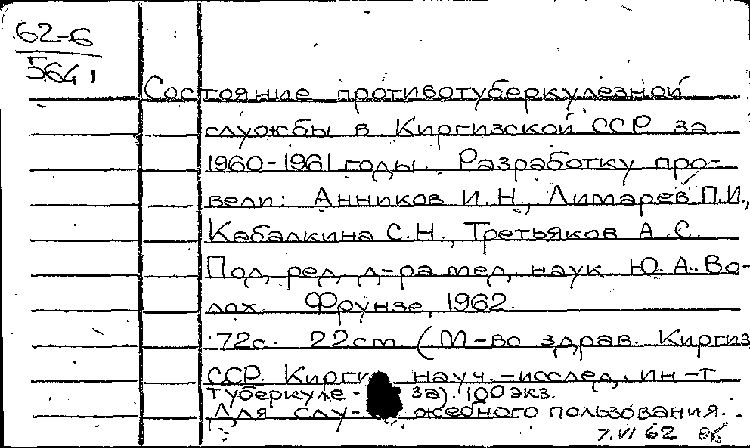 62-6
5641
Состояние противотуберкулезной
службы в Киргизской ССР за
1960-1961 годы. Разработку про-
вели: Анников И.Н., Лимарев П.И.,
Кабалкина С.Н., Третьяков А.С.
Под ред. д-ра мед. наук Ю.А. Во-
лох. Фрунзе, 1962.
72с. 22см (М-во здрав. Киргиз
ССР. Кирги науч.-исслед. ин-т
туберкуле- за). 100 экз.
Для слу- жебного пользования.
7.VI 62